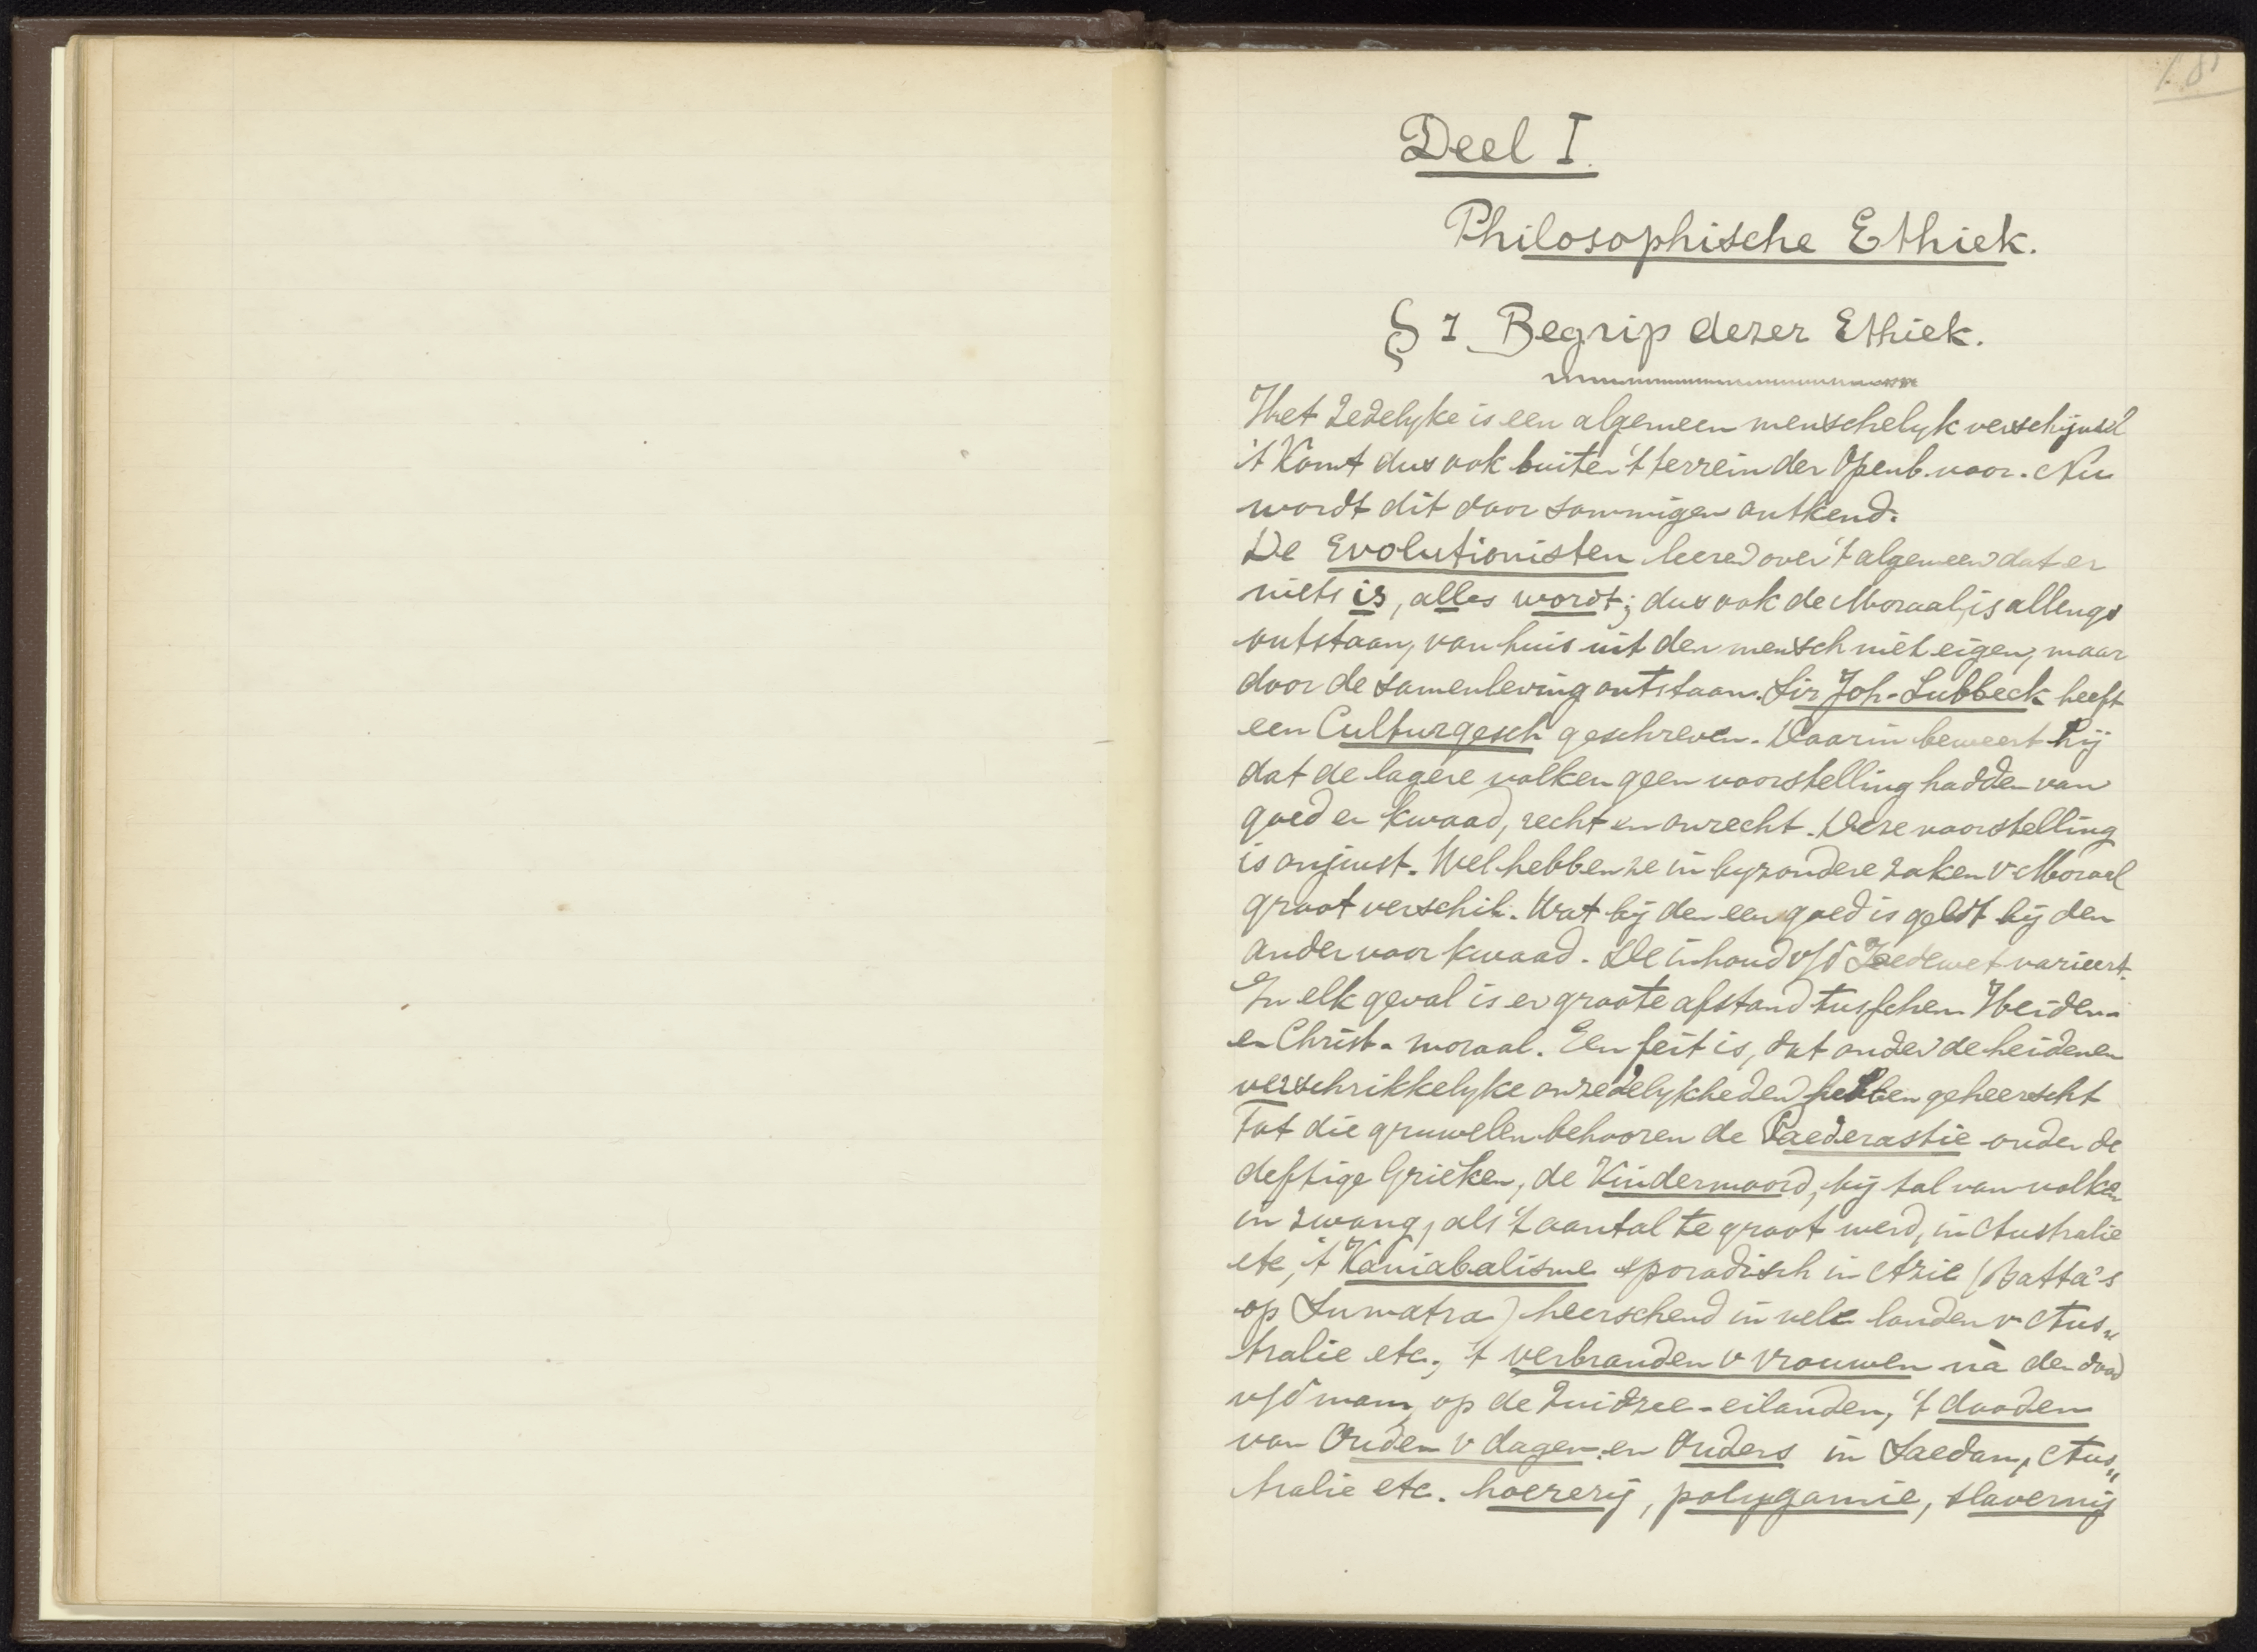 Deel I.
Philosophische Ethiek.
§ 1 Begrip dezer Ethiek.
Het Zedelyke is een algemeen menschelyk verschijnsel
't Komt dus ook buiten 't terrein der Openb. voor. Nu
wordt dit door sommigen ontkend.
De Evolutionisten leeren over 't algemeen dat er
niets is, alles wordt; dus ook de Moraal, is allengs
ontstaan, van huis uit den mensch niet eigen, maar
door de samenleving ontstaan. Sir Joh. Lubbeck heeft
een Culturgesch geschreven. Daarin beweert hij
dat de lagere volken geen voorstelling hadden van
goed en kwaad, recht en onrecht. Deze voorstelling
is onjuist. Wel hebben ze in byzondere zaken v. Moraal
groot verschil. Wat bij den een goed is geldt bij den
ander voor kwaad. De inhoud v/d Zedewet varieert.
In elk geval is er groote afstand tusschen Heiden-
en Christ. moraal. Een feit is, dat onder de heidenen
verschrikkelyke onzedelykheden hebben geheerscht
Tot die gruwelen behooren de Paederastie onder de
deftige Grieken, de Kindermoord, bij tal van volken
in zwang, als 't aantal te groot werd, in Australie
etc, 't Kaniabalisme sporadisch in Azie (Batta's
op Sumatra) heerschend in vele landen v Aus„
tralie etc., 't verbranden v vrouwen nà den dood
v/d man, op de Zuidzee-eilanden, 't dooden
van Ouden v dagen en Ouders in Soedan, Aus„
tralie etc. hoererij, polygamie, slavernij